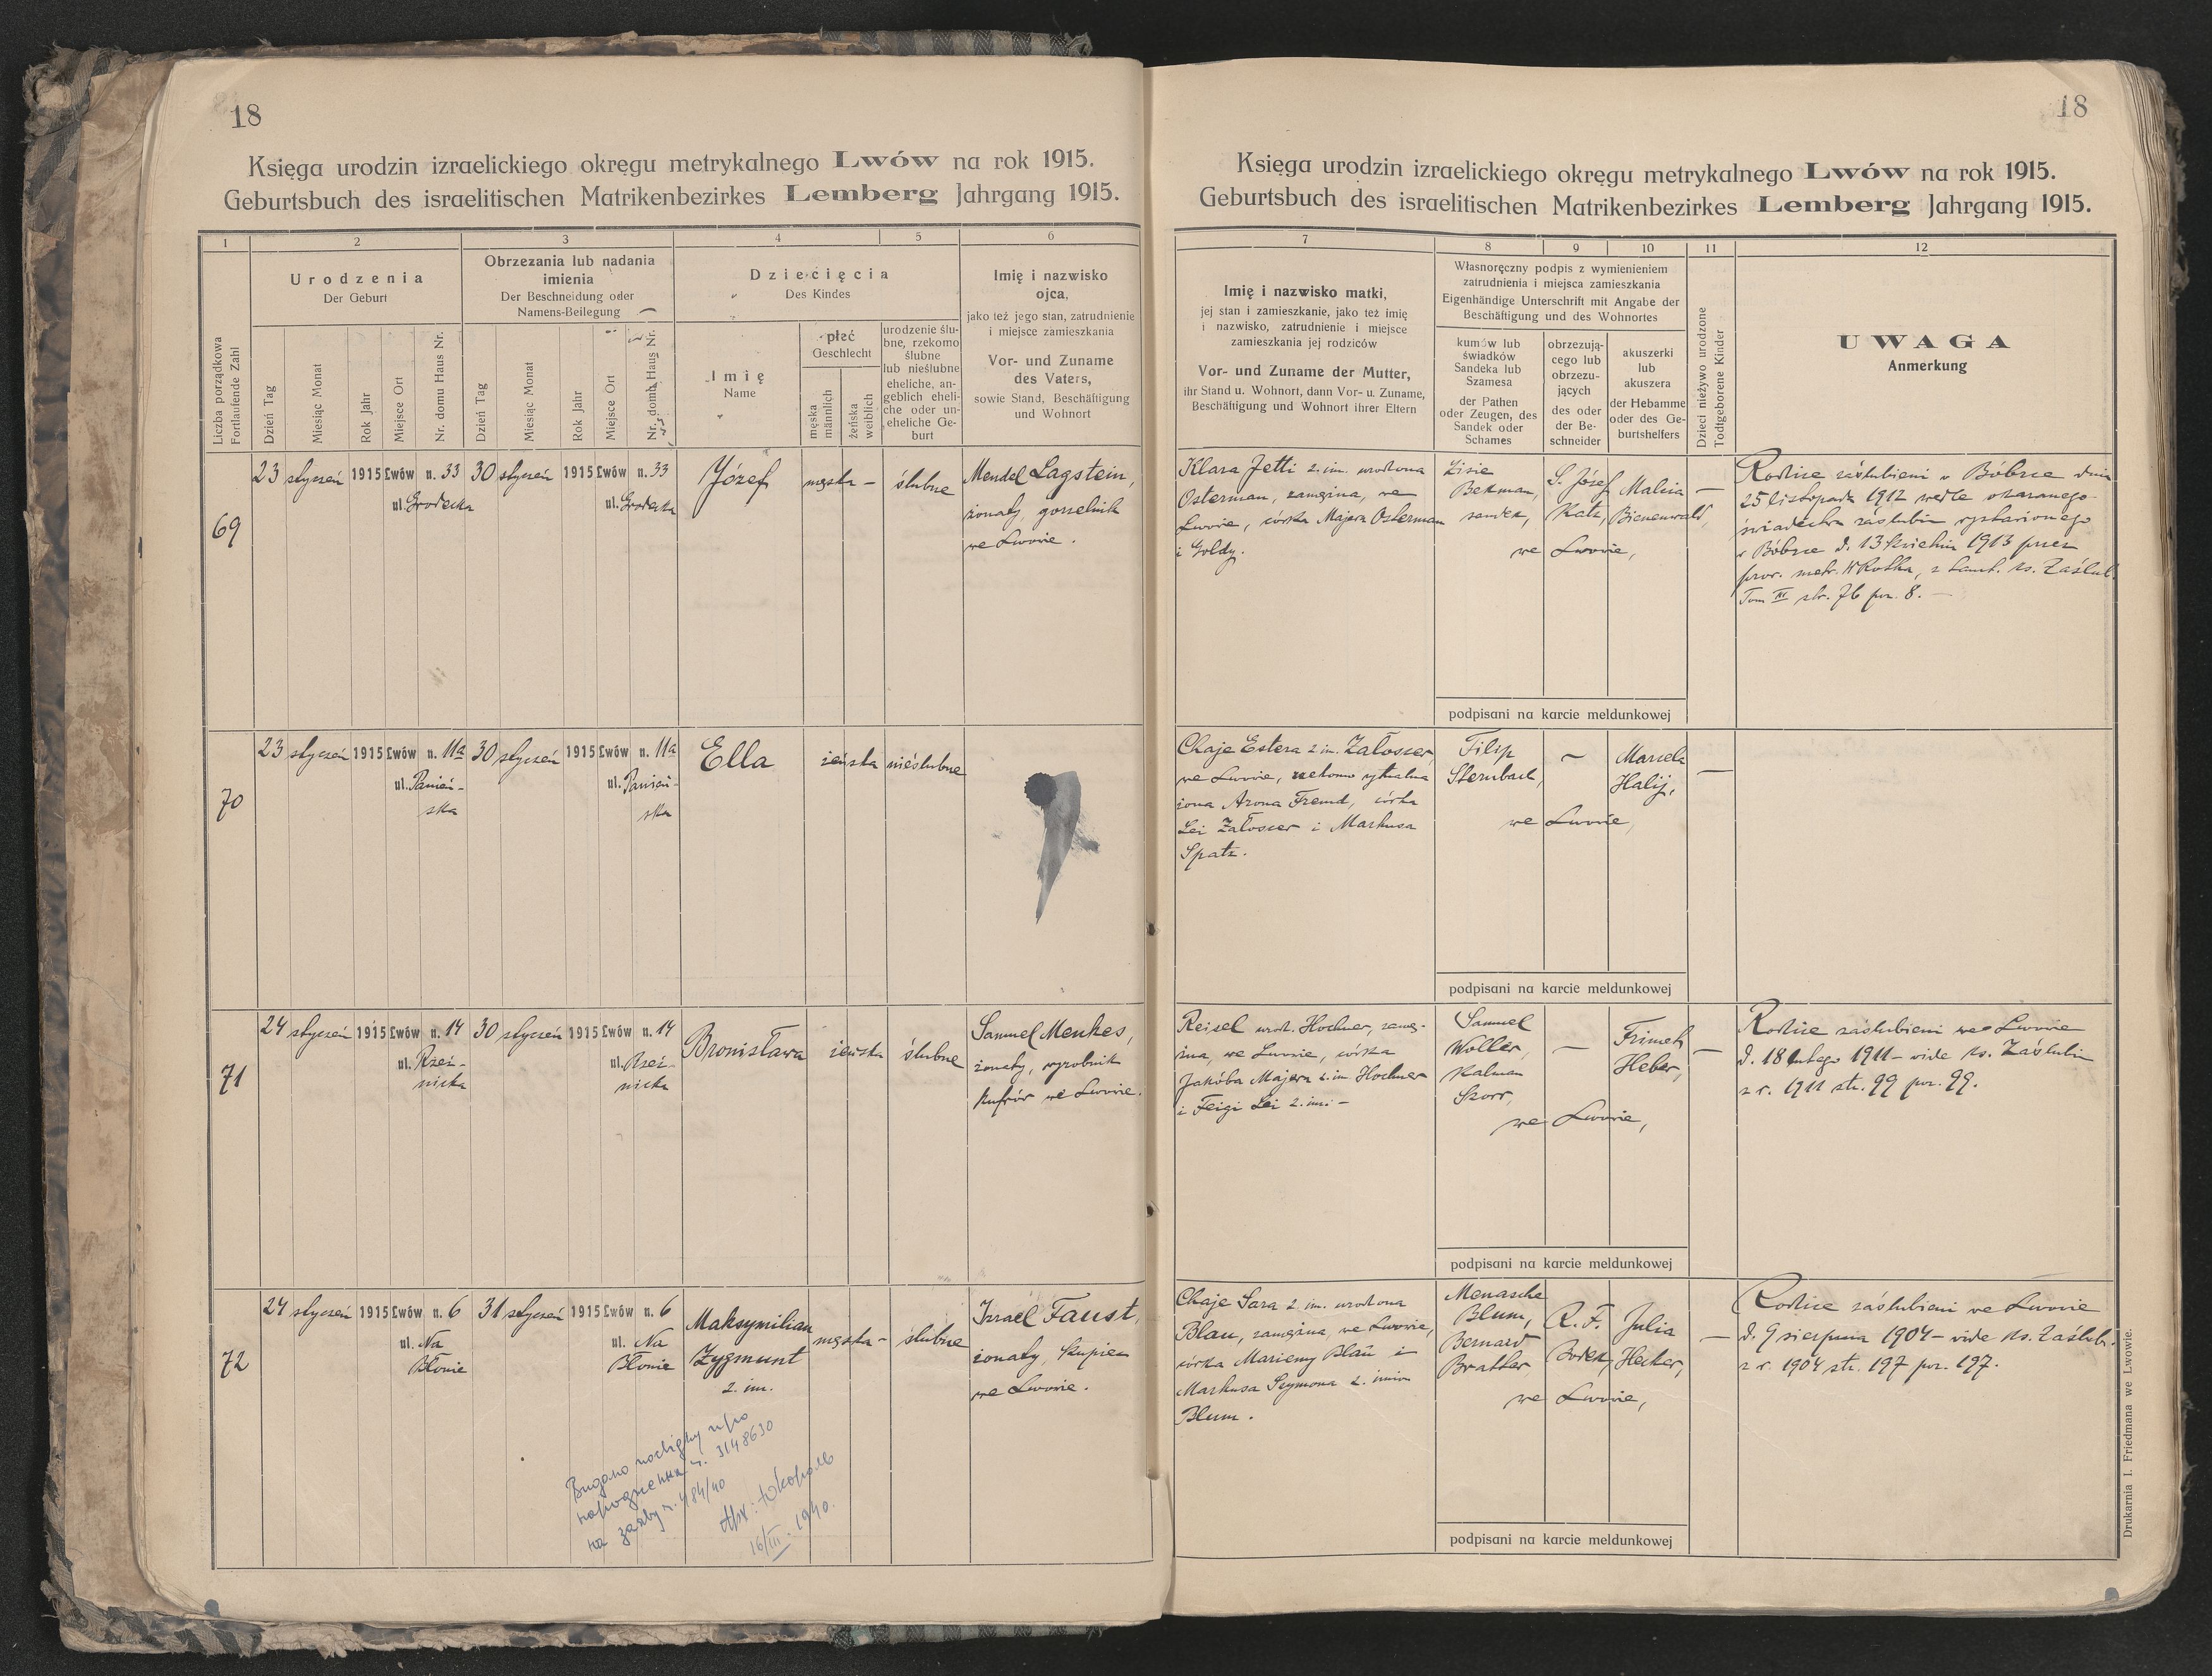 18
Księga urodzin izraelickiego okręgu metrykalnego Lwów na rok 1915.
Geburtsbuch des israelitischen Matrikenbezirkes Lemberg Jahrgang 1915.
1 2 3 4 5 6
Liczba porządkowa
Fortlaufende Zahl
Urodzenia
Der Geburt
Dzień Tag
Miesiąc Monat
Rok Jahr
Miejsce Ort
Nr. domu Haus Nr.
Obrzezania lub nadania
imienia
Der Beschneidung oder
Namens-Beilegung
Dzień Tag
Miesiąc Monat
Rok Jahr
Miejsce Ort
Nr. domu Haus Nr.
Dziecięcia
Des Kindes
Imię
Name
płeć
Geschlecht
męska
männlich
żeńska
weiblich
urodzenie ślu-
bne, rzekomo
ślubne
lub nieślubne
eheliche, an-
geblich eheli-
che oder un-
eheliche Ge-
burt
Imię i nazwisko
ojca,
jako też jego stan, zatrudnienie
i miejsce zamieszkania
Vor- und Zuname
des Vaters,
sowie Stand, Beschäftigung
und Wohnort
69
23 styczeń 1915 Lwów n. 33
ul. Grodecka
30 styczeń 1915 Lwów n. 33
ul. Grodecka
Józef
męska –
ślubne
Mendel Lagstein,
żonaty, gorzelnik
we Lwowie.
70
23 styczeń 1915 Lwów n. 11a
ul. Panień-
ska
30 styczeń 1915 Lwów n. 11a
ul. Panień-
ska
Ella
żeńska
nieślubne
71
24 styczeń 1915 Lwów n. 14
ul. Rzeź-
nicka
30 styczeń 1915 Lwów n. 14
ul. Rzeź-
nicka
Bronisława
żeńska
ślubne
Samuel Menkes,
żonaty, wyrobnik
kufrów we Lwowie.
72
24 styczeń 1915 Lwów n. 6
ul. Na
Błonie
31 styczeń 1915 Lwów n. 6
ul. Na
Błonie
Maksymilian
Zygmunt
2. im.
męska –
ślubne
Izrael Faust,
żonaty, kupiec
we Lwowie.
Видано про
народження ч. 3148630
на 484/40
16/III. 1940.
18
Księga urodzin izraelickiego okręgu metrykalnego Lwów na rok 1915.
Geburtsbuch des israelitischen Matrikenbezirkes Lemberg Jahrgang 1915.
7 8 9 10 11 12
Imię i nazwisko matki,
jej stan i zamieszkanie, jako też imię
i nazwisko, zatrudnienie i miejsce
zamieszkania jej rodziców
Vor- und Zuname der Mutter,
ihr Stand u. Wohnort, dann Vor- u. Zuname,
Beschäftigung und Wohnort ihrer Eltern
Własnoręczny podpis z wymienieniem
zatrudnienia i miejsca zamieszkania
Eigenhändige Unterschrift mit Angabe der
Beschäftigung und des Wohnortes
kumów lub
świadków
Sandeka lub
Szamesa
der Pathen
oder Zeugen, des
Sandek oder
Schames
obrzezują-
cego lub
obrzezu-
jących
des oder
der Be-
schneider
akuszerki
lub
akuszera
der Hebamme
oder des Ge-
burtshelfers
Dzieci nieżywo urodzone
Todtgeborene Kinder
UWAGA
Anmerkung
Klara Jetti 2. im. urodzona
Osterman, zamężna, we
Lwowie, córka Majera Osterman
i Goldy.
Zisie
Bekman,
sandek,
S. Józef
Katz,
Malcia
Bienenwald,
we Lwowie,
–
Rodzice zaślubieni w Bóbrce dnia
25 listopada 1912 wedle okazanego
świadectwa zaślubin wystawionego
w Bóbrce d. 13 kwietnia 1913 przez
prow. metr. W. Rothka, z tamt. ks. Zaślub.
Tom III str. 76 poz. 8. –
podpisani na karcie meldunkowej
Chaje Estera 2 im. Załoscer,
we Lwowie, rzekomo rytualna
żona Arona Fremd, córka
Lei Załoscer i Markusa
Spatz.
Filip
Sternbach,
–
Marcela
Halij,
we Lwowie,
–
podpisani na karcie meldunkowej
Reisel urodz. Hochner, zamęż-
żna, we Lwowie, córka
Jakóba Majera 2. im Hochner
i Feigi Lei 2. im. –
Samuel
Woller,
Kalman
Skorr,
–
Frimet
Heber,
we Lwowie,
–
Rodzice zaślubieni we Lwowie
d. 18 lutego 1911 – vide ks. Zaślubin
z r. 1911 str. 99 poz. 99.
podpisani na karcie meldunkowej
Chaje Sara 2 im. urodzona
Blau, zamężna, we Lwowie,
córka Mariemy Blau i
Markusa Szymona 2. imion
Blum.
Menasche
Blum,
Bernard
Brather,
R. F.
Bodek,
Julia
Hecker,
we Lwowie,
–
Rodzice zaślubieni we Lwowie
d. 9 sierpnia 1904 – vide ks. Zaślub.
z r. 1904 str. 197 poz. 197.
podpisani na karcie meldunkowej
Drukarnia I. Friedmana we Lwowie.